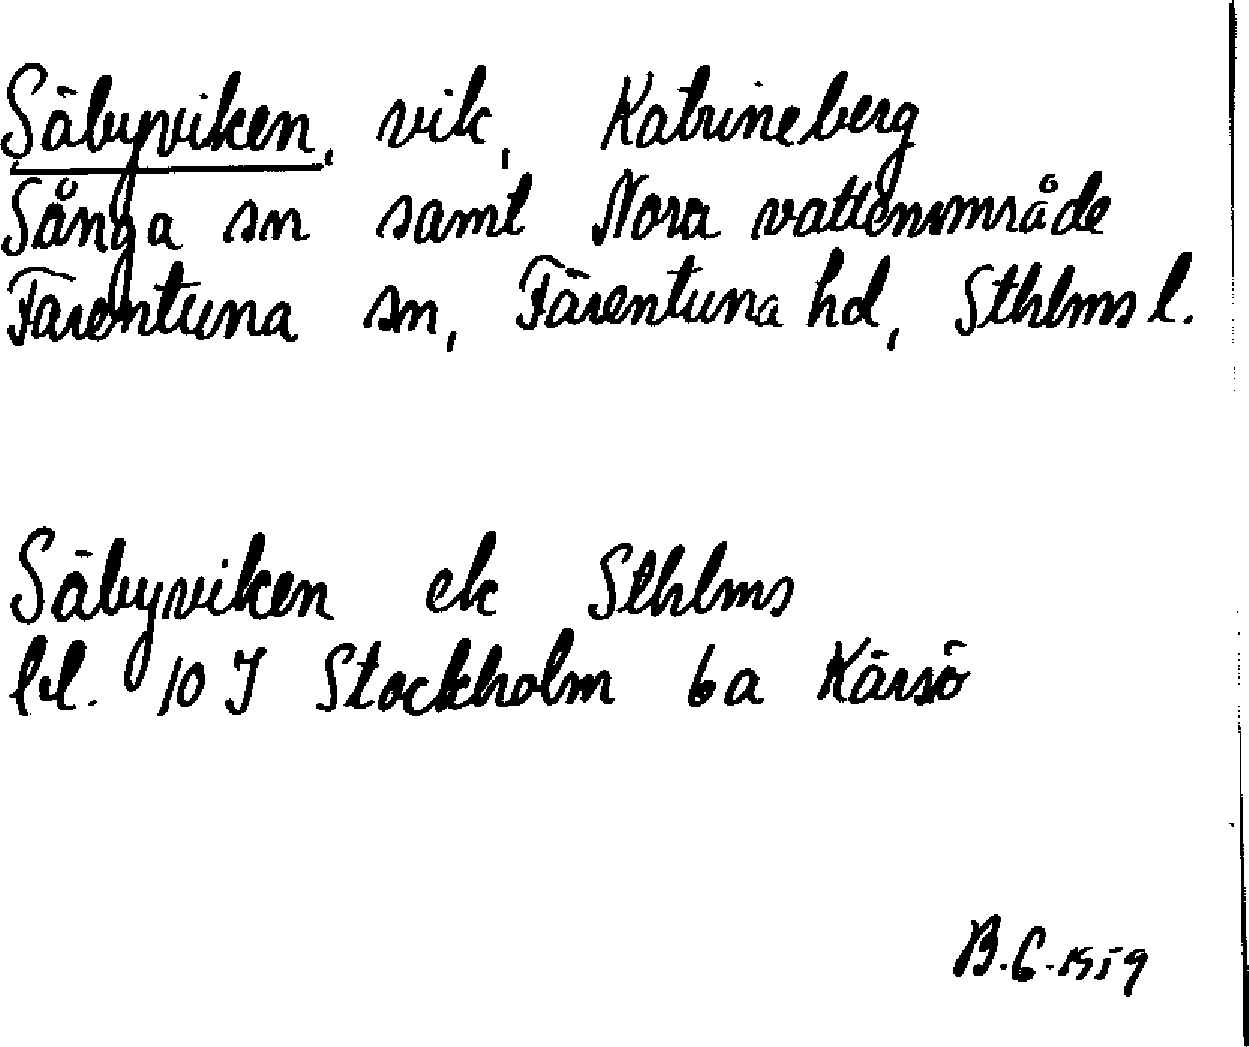 Säbyviken, vik, Katrineberg
Sånga sn samt Nora vattenområde
Färentuna sn, Färentuna hd, Sthlms l.
Säbyviken ek Sthlms
bl. 10 I Stockholm 6a Kärsö
B.C. 1959